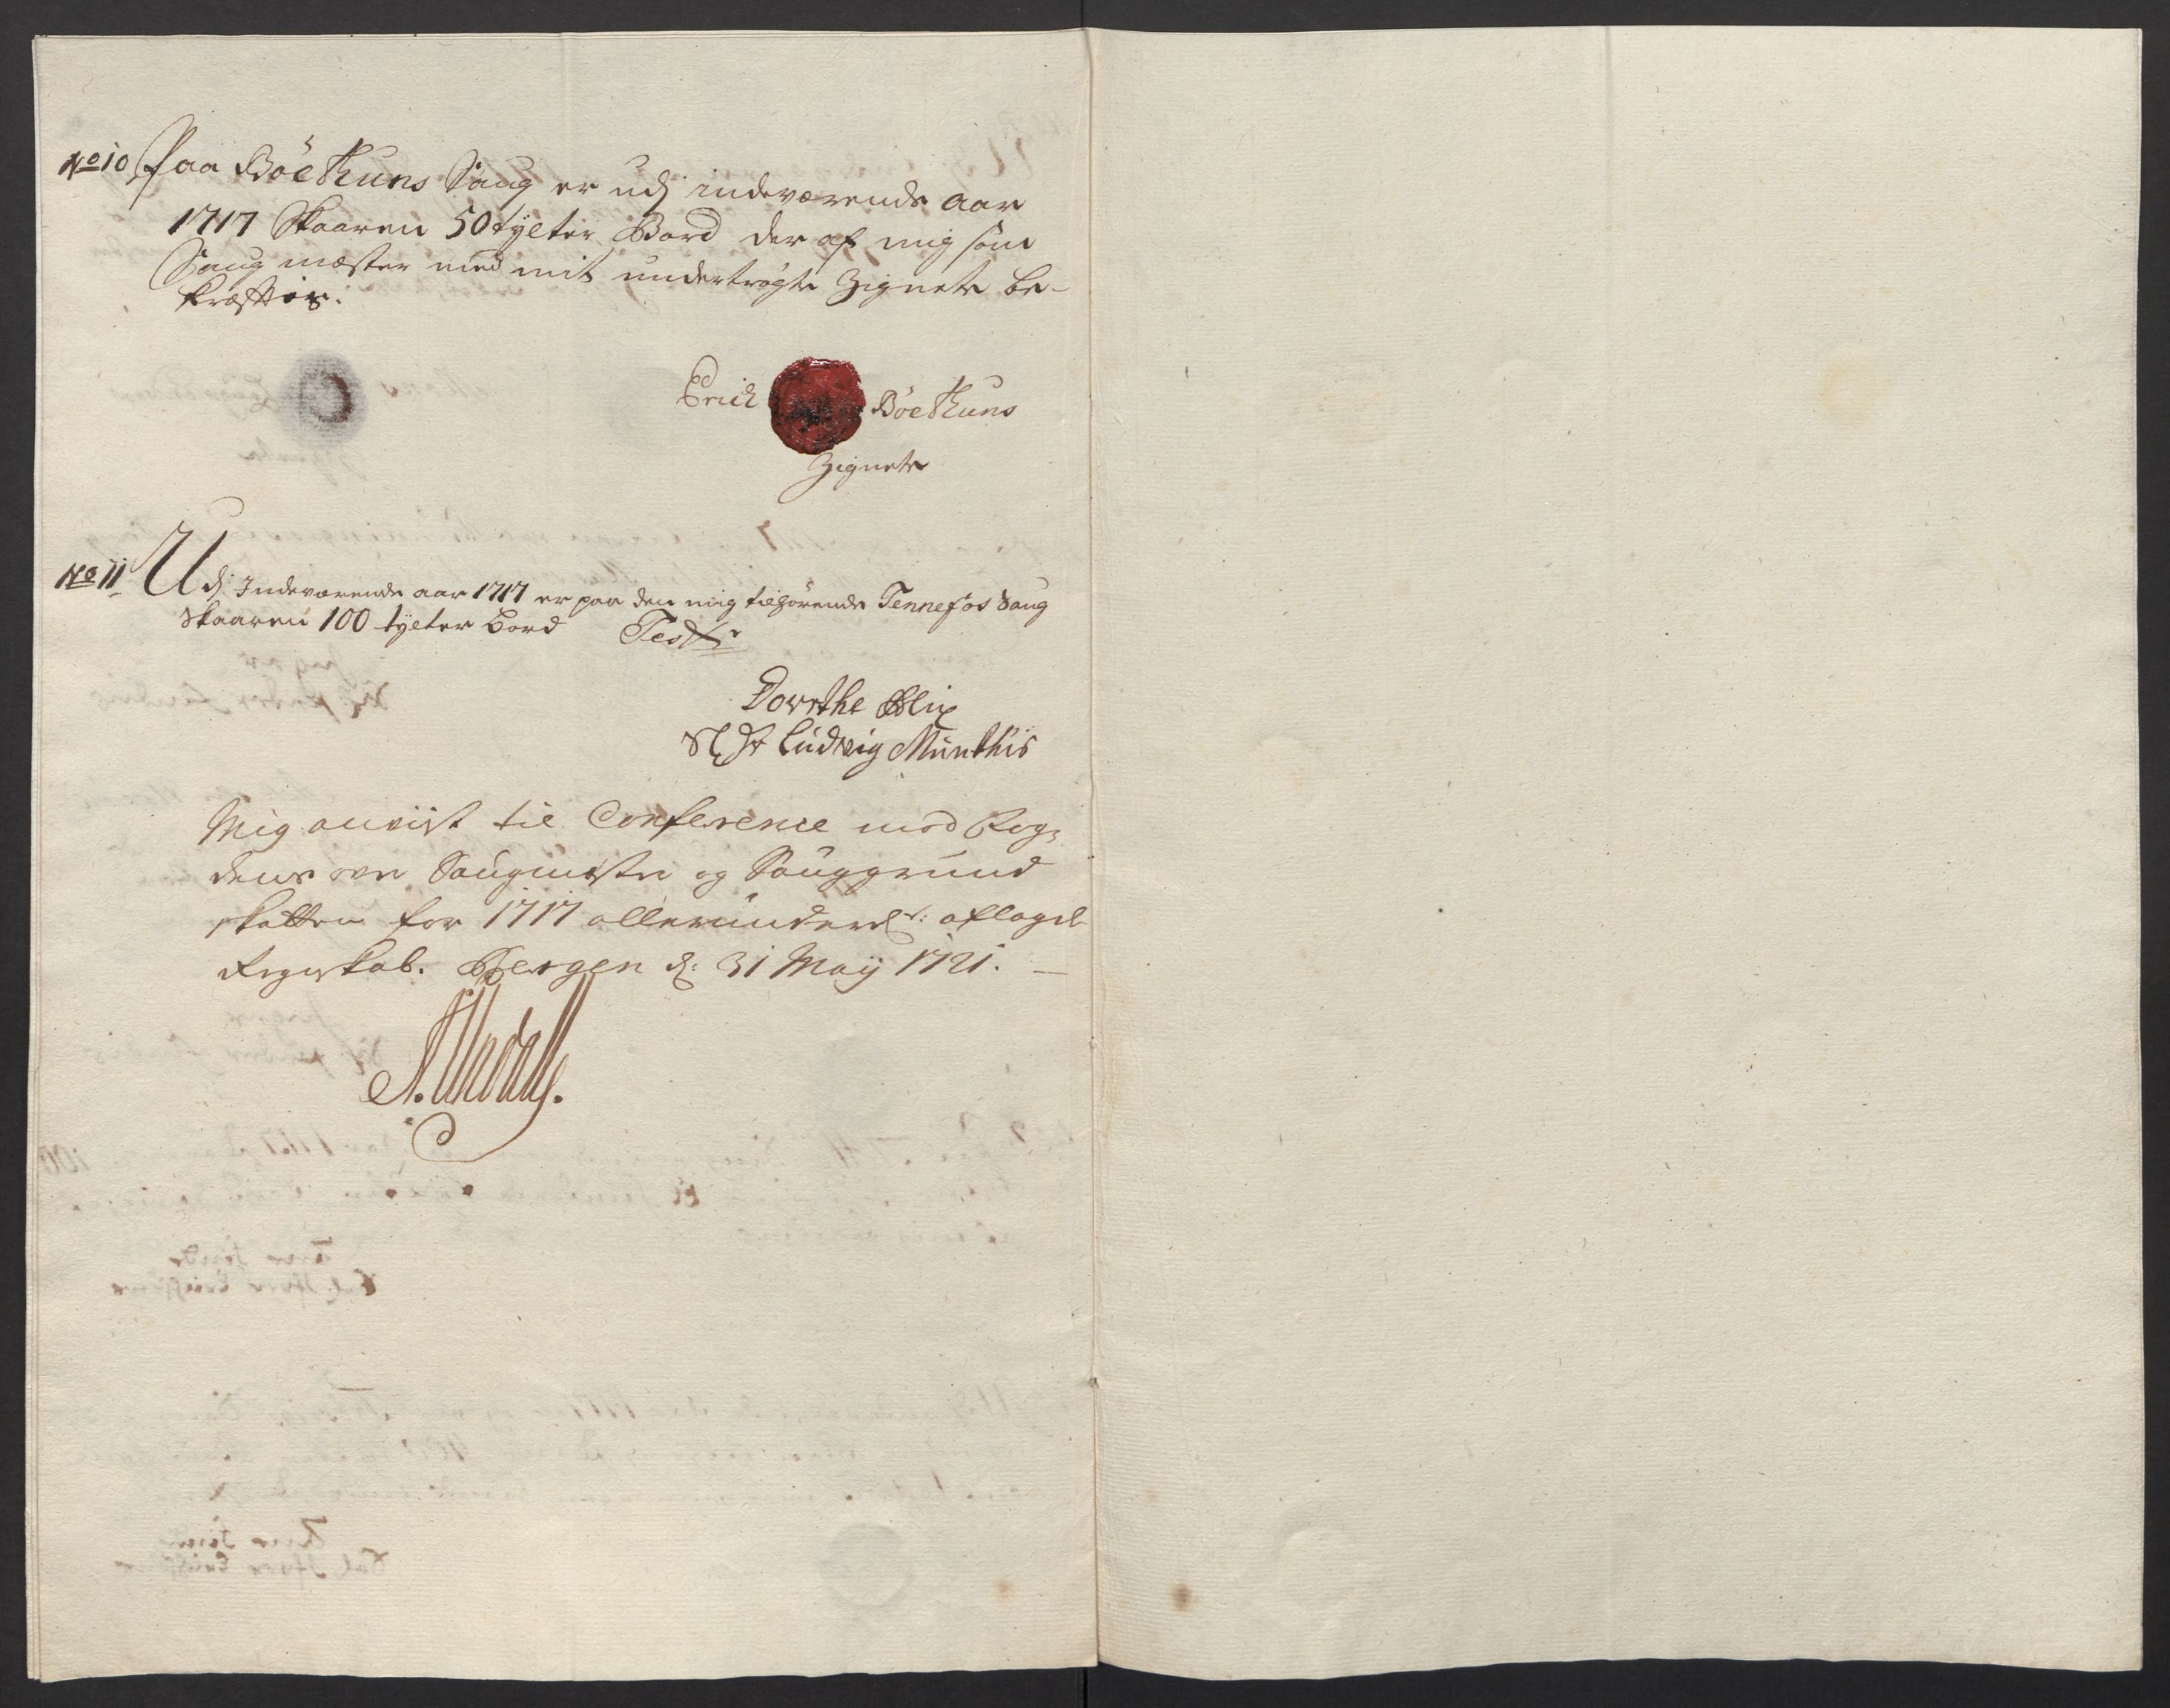 No 10 Paa Böe Thuns Saug er udj indeværende aar
1717 Skaaren 50 tylter Bord der af mig som
Saug mester med mit undertrögte Zignete be-
kræfftis.
Erich Böe Thuns
Zignete
No 11 Udj Indeværende aar 1717 er paa den mig tilhörende Tennefos Saug
Skaaren 100 tylter Bord Test
Dorethe Blix
Sl Hr Ludvig Munthis
Mig anvist til Conference mod Fog-
dens over Saugmestre og Sauggrund
skatten for 1717 allerunderd: aflagde
Regnskab. Bergen d: 31 Maij 1721.